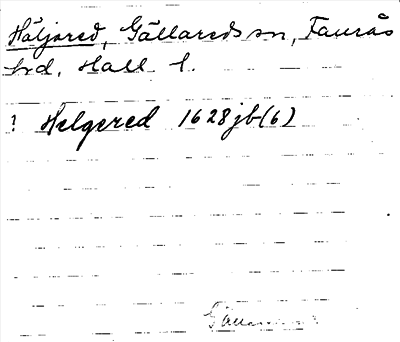 Häljared, Gällareds sn, Faurås
hrd, Hall l.
? Helgered 1628 jb (6)